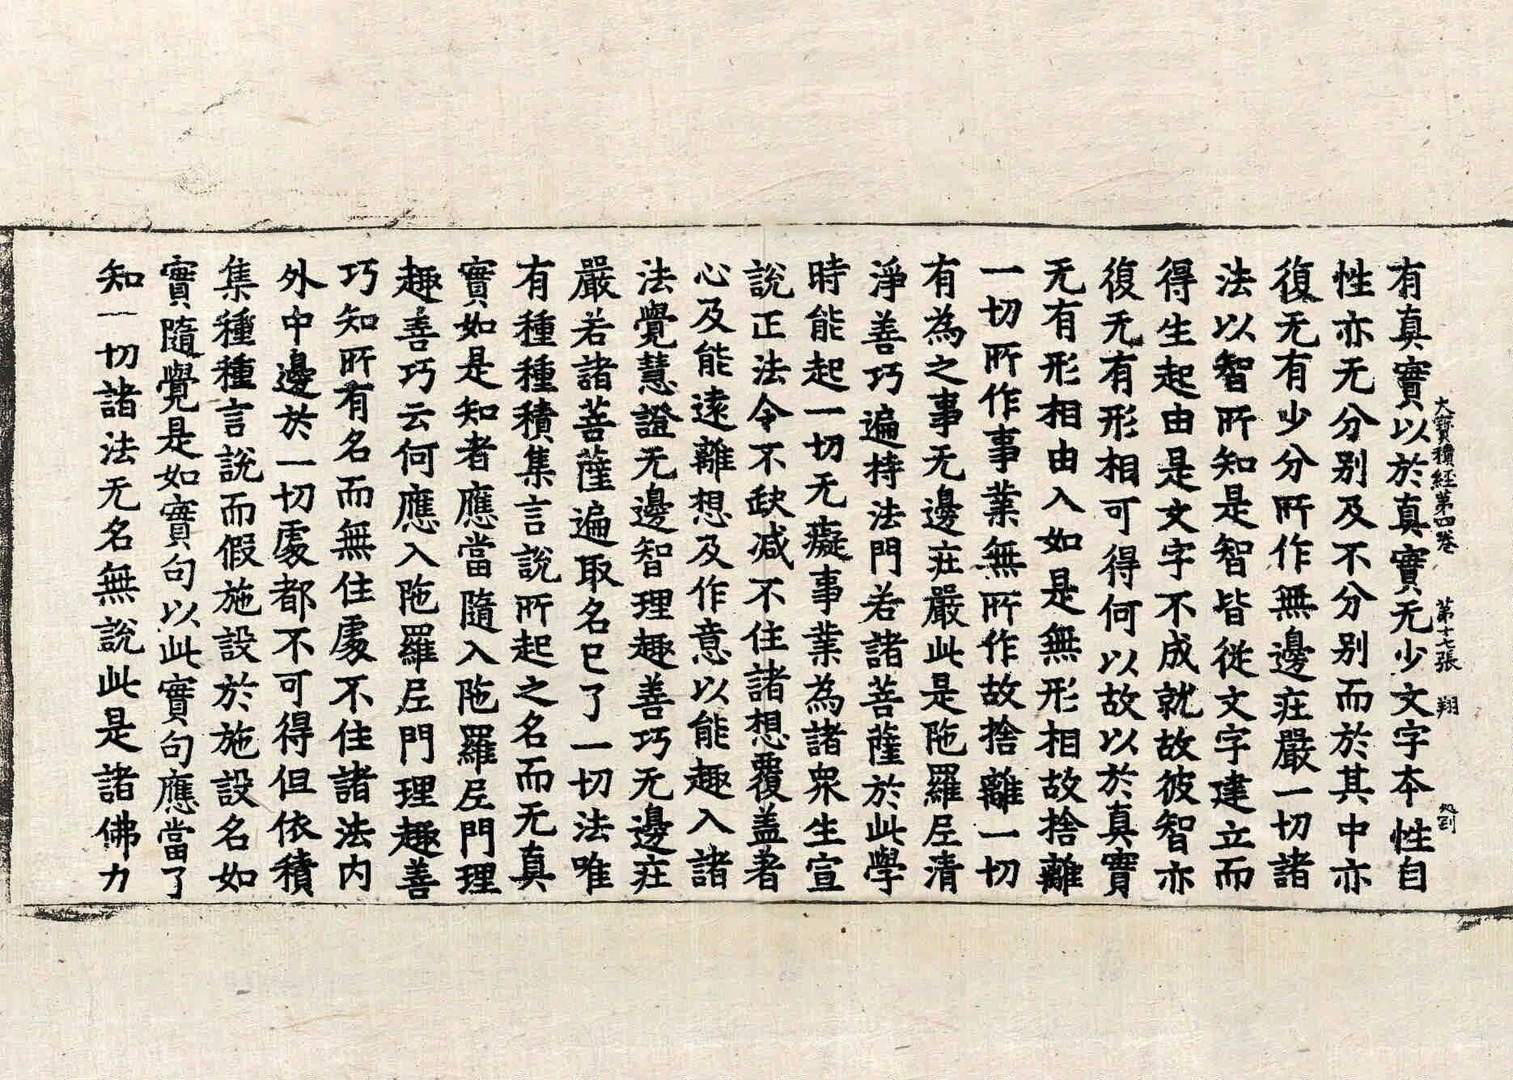 大寶積經第四卷 第十七張 翔
有真實以於真實无少文字本性自
性亦无分别及不分别而於其中亦
復无有少分所作無邊莊嚴一切諸
法以智所知是智皆從文字建立而
得生起由是文字不成就故彼智亦
復无有形相可得何以故以於真實
无有形相由入如是無形相故捨離
一切所作事業無所作故捨離一切
有為之事无邊莊嚴此是陁羅尼清
淨善巧遍持法門若諸菩薩於此學
時能起一切无癡事業為諸眾生宣
說正法令不缺減不住諸想覆盖著
心及能遠離想及作意以能趣入諸
法覺慧證无邊智理趣善巧无邊莊
嚴若諸菩薩遍取名已了一切法唯
有種種積集言說所起之名而无真
實如是知者應當隨入陁羅尼門理
趣善巧云何應入陁羅尼門理趣善
巧知所有名而無住處不住諸法内
外中邊於一切處都不可得但依積
集種種言說而假施設於施設名如
實隨覺是如實句以此實句應當了
知一切諸法无名無說此是諸佛力